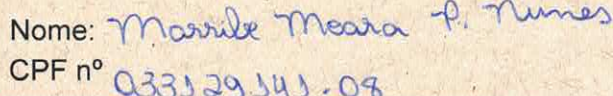 Nome: Marribe Meara P. Nunes
CPF nº 033129141.08